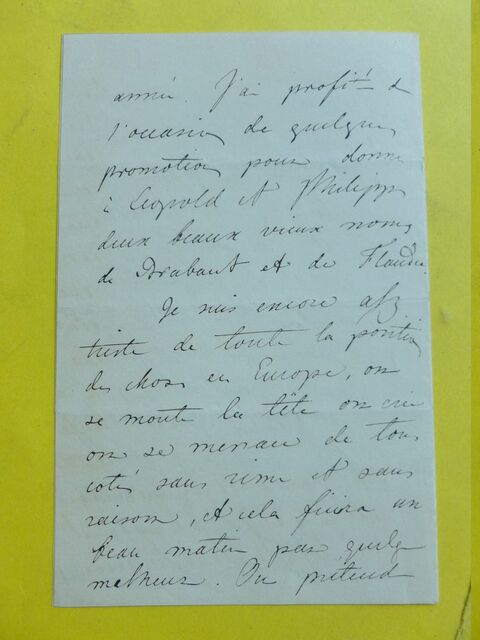 année. J'ai profité de
l'occasion de quelques
promotions pour donner
à Léopold et Philippe
deux beaux vieux noms
de Brabant et de Flandre.
Je suis encore assez
triste de toute la position
des choses en Europe, on
se monte la tête on crie
on se menace de tous
cotés sans rime et sans
raison, et cela finira un
beau matin par quelque
malheur. On prétend